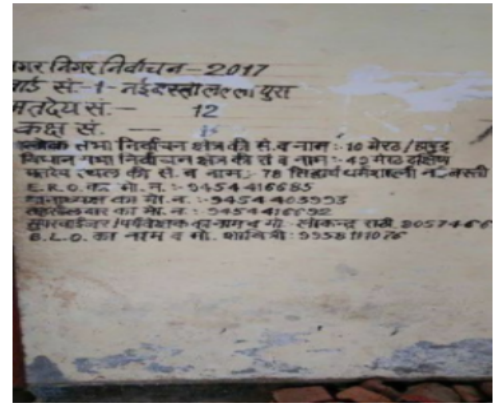 नगर निगर निर्वाचन - 2017
वार्ड सं.-1- नई बस्ती लल्लापुरा
मतदेय सं. - 12
कक्ष सं. -
लोक सभा निर्वाचन क्षेत्र की सं. व नाम :- 10 मेरठ / हापुड़
विधान सभा निर्वाचन क्षेत्र की सं व नाम :- 49 मेरठ दक्षिण
मतदेय स्थल की सं. व नाम :- 78 सिद्धार्थ धर्मशाला न. बस्ती
E.R.O. का मो. न. :- 9454416685
थानाध्यक्ष का मो. न. :- 9454403993
तहसीलदार का मो. न. :- 9454416692
सुपरवाईजर / पर्यवेक्षक का नाम व मो :- लोकेन्द्र राठी 8057466
B.L.O. का नाम व मो. शावित्री : 9958111076